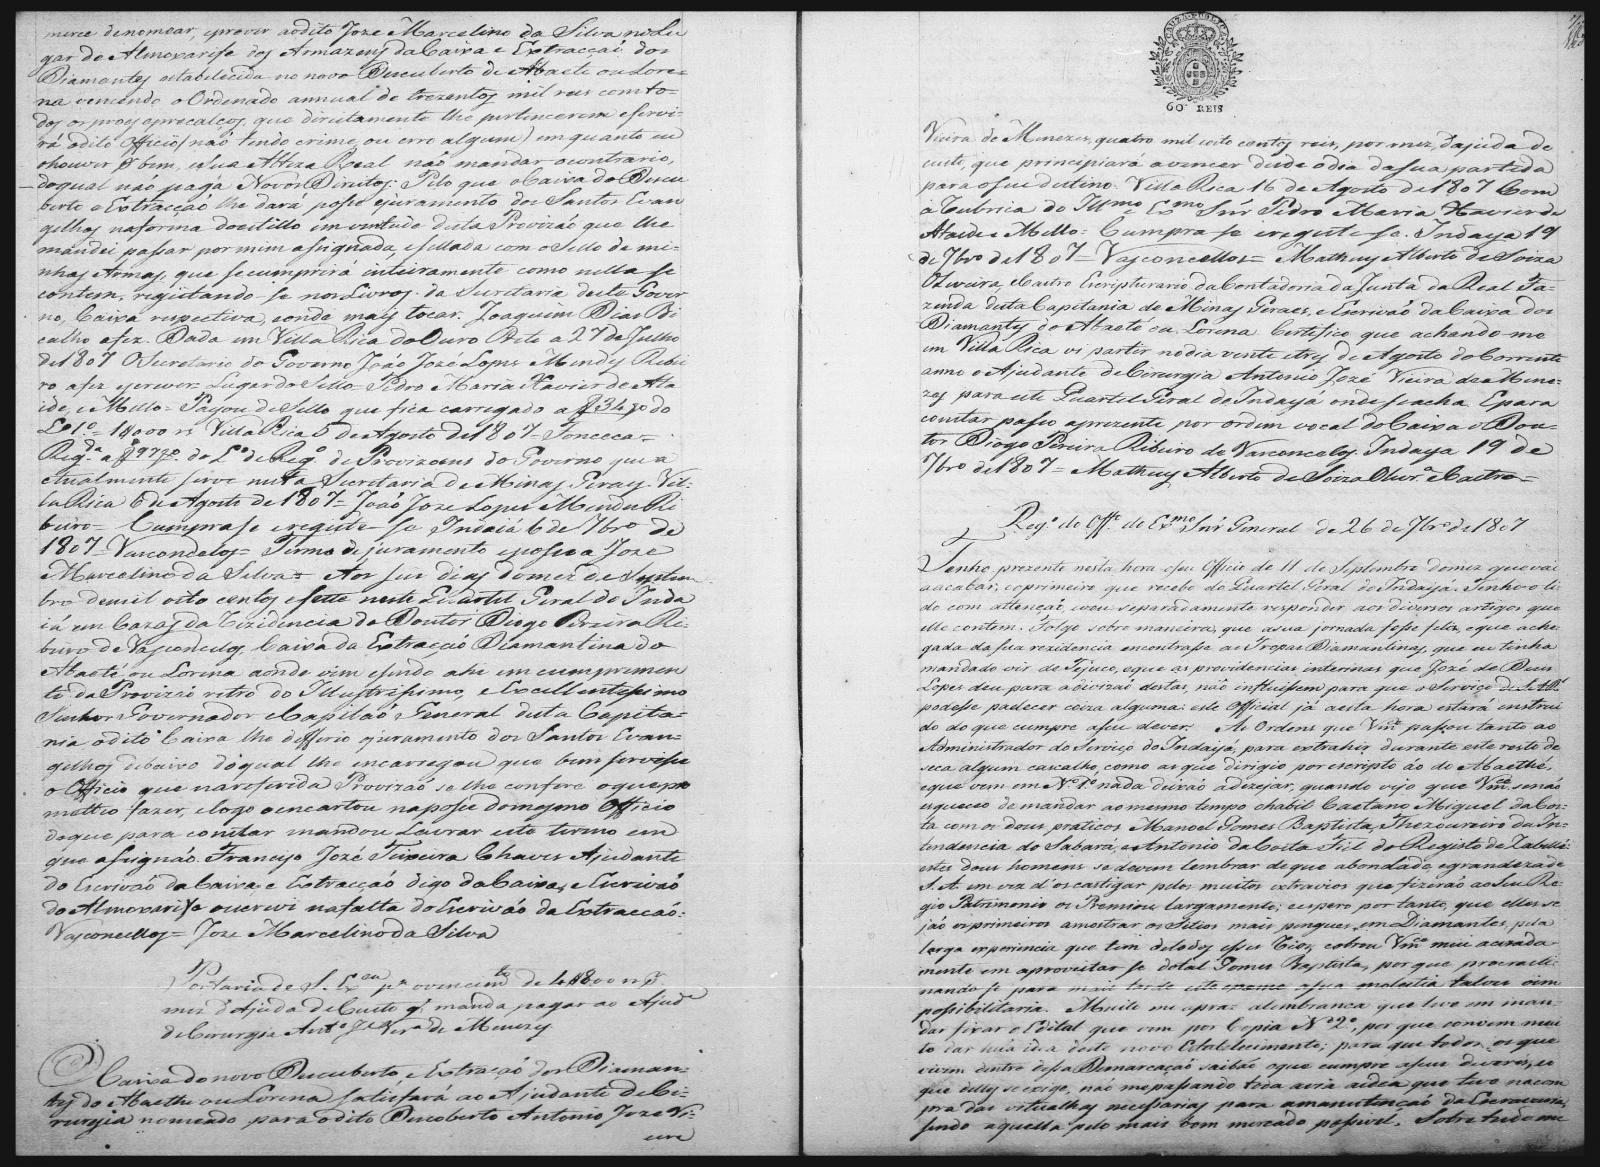 merce de nomear, eprover aodito Joze Marcelino da Silva no Lu
gar de Almoxarife dos Armazens da Caixa e Extracçaõ dos
Diamantes estabelecida no novo Descuberto de Abaeté ou Lore=
na vencendo o Ordenado annual de trezentos mil reis com to=
dos os proes eprecalços, que direitamente lhe pertencerem eservi=
rá odito Officio (naõ tendo crime, ou erro algum) em quanto eu
ohouver por bem, e Sua Alteza Real naõ mandar ocontrario,
doqual naõ paga Novos Direitos: Pelo que o Caixa do Descu
berto e Extracçaõ lhe dará posse ejuramento dos Santos Evan
gelhos naforma doestillo em virtude desta Provizaõ que lhe
mandei passar por mim assignada, esellada com o Sello de mi=
nhas Armas, que secumprirá inteiramente como nella se
contem, registando-se nos Livros da Secretaria deste Gover
no, Caixa respectiva, eonde mais tocar. Joaquim Dias Bi
calho afez. Dada em Villa Rica do Ouro Preto a 27 de Julho
de 1807 O Secretario do Governo Joaõ José Lopes Mendes Ribei
ro afez escrever. Lugar do Sello = Pedro Maria Xavier de Ata
ide, e Mello = Pagou de Sello que fica carregado a f 34 do
L.º 1.º = 1$000 rs Villa Rica 5 de Agosto de 1807 = Fonceca =
Reg.da a f 97 do L.º de Reg.º de Provizoens do Governo que a
ctualmente serve nesta Secretaria de Minas Geraes. Vil=
la Rica 6 de Agosto de 1807 = Joaõ Joze Lopes Mendes Ri
beiro = Cumprase eregiste-se Indaiá 6 de 7bro de
1807 = Vasconcelos = Termo de juramento eposse a Joze
Marcelino da Silva = Aos seis dias domez de Septem
bro demil oito centos esette neste Quartel Geral do Inda
iá em Cazas da Rezidencia do Doutor Diogo Pereira Ri=
beiro de Vasconcelos Caixa da Extracçaõ Diamantina do
Abaeté, ou Lorena aonde vim esendo ahi em cumprimen
to da Provizaõ retro do Illustrissimo, e Excellentissimo
Senhor Governador e Capitaõ General desta Capita=
nia odito Caixa lhe defferio ojuramento dos Santos Evan=
gelhos debaixo doqual lhe encarregou que bem servisse
o Officio que nareferida Provizaõ se lhe confere oquepro
metteo fazer, elogo oencartou naposse domesmo Officio
doque para constar mandou Lavrar este termo em
que assignaõ. Francisco Jozé Teixeira Chaves Ajudante
do Escrivaõ da Caixa e Extracçaõ digo da Caixa, e Escrivaõ
do Almoxarife oescrevi nafalta do Escrivaõ da Extracçaõ:
Vasconcellos = Joze Marcelino da Silva
Portaria de S. Ex.cia p.ª ovencim.to de 4$800 rs p.r
mez d'Ajuda de Custo q' manda pagar ao Ajud.e
de Cirurgia Ant.º J.e Vr.ª de Menezes
O Caixa do novo Descuberto e Extracçaõ dos Diaman=
tes do Abaethe ou Lorena satisfará ao Ajudante de Ci=
rurgia nomeado para odito Descoberto Antonio Joze Vi=
eira
CAUZA PUBLICA
60 REIS
Vieira de Menezes, quatro mil oito centos reis, por mez, d'ajuda de
custo, que principiará avencer desde odia dasua partida
para oseu destino. Villa Rica 16 de Agosto de 1807 Com
a Rubrica do Ill.mo e Ex.mo Snr Pedro Maria Xavier de
Ataide e Mello = Cumpra-se eregiste-se. Indaya 19
de 7bro de 1807 = Vasconcellos = Matheus Alberto de Soiza
Oliveira, e Castro Escripturario da Contadoria da Junta da Real Fa=
zenda desta Capitania de Minas Geraes, e Escrivaõ da Caixa dos
Diamantes do Abaeté ou Lorena Certifico que achando me
em Villa Rica vi partir nodia vente etres de Agosto do Corrente
anno o Ajudante de Cirurgia Antonio Jozé Vieira de Mene=
zes para este Quartel Geral do Indayá onde seacha. E para
constar passo aprezente por ordem vocal do Caixa o Dou=
tor Diogo Pereira Ribeiro de Vasconcelos. Indaya 19 de
7bro de 1807 = Matheus Alberto de Soiza Olivr.ª e Castro =
Reg.º do Off.º do Ex.mo Snr General de 26 de 7bro de 1807
Tenho prezente nesta hora oseu Officio de 11 de Septembro domez que vai
aacabar; oprimeiro que recebo do Quartel Geral do Indayá. Tenho-o li=
do com attençaõ, evou separadamente responder aos diversos artigos que
elle contem. Folgo sobre maneira, que asua jornada fosse feliz, eque ache
gada da sua rezidencia encontrasse as Tropas Diamantinas, que eu tinha
mandado vir do Tejuco, eque as providencias interinas que José de Deus
Lopes deu para adivizaõ destas, naõ influissem para que o Serviço de S.A.R.
podesse padecer coiza alguma: este Official já aesta hora estará instrui
do do que cumpre aseu dever. As Ordens que Vm.ce passou tanto ao
Administrador do Serviço do Indaiá, para extrahir durante este resto de
seca algum cascalho, como as que dirigio por escripto ao do Abaethé,
eque vem em N.º 1.º nada deixaõ adezejar, quando vejo que Vm.ce senaõ
esqueceo de mandar ao mesmo tempo ohabil Caetano Miguel da Cos=
ta com os dous praticos Manoel Gomes Baptista, Thezoureiro da In=
tendencia do Sabará, e Antonio da Costa Fiel do Registo de Zabellê:
estes dous homens se devem lembrar de que abondade, egrandeza de
S. A. em vez d'os castigar pelos muitos extravios que fizeraõ ao Seu Re=
gio Patrimonio os Premiou largamente; eespero por tanto, que elles se
jaõ os primeiros amostrar os Sitios mais pingues em Diamantes, pela
larga experiencia que tem detodos esses Rios; eobrou Vm.ce mui acurada=
mente em aproveitar se dotal Gomes Baptista, por que procrasti=
nando se para mais tarde este exame asua molestia talvez oim
possibilitaria. Muito me apraz alembranca que teve em man=
dar fixar o Edital que vem por Copia N.º 2.º, por que convem mui
to dar huã idea deste novo Estabelecimento; para que todos os que
vivem dentro dessa Demarcaçaõ saibaõ oque cumpre aseus deveres, eo
que delles se exige, naõ mepassando toda avia aidea que teve nacom
pra das vitualhas necessarias para amanutençaõ da Escravatura,
sendo aquella pelo mais bom mercado possivel. Sobre tudo me